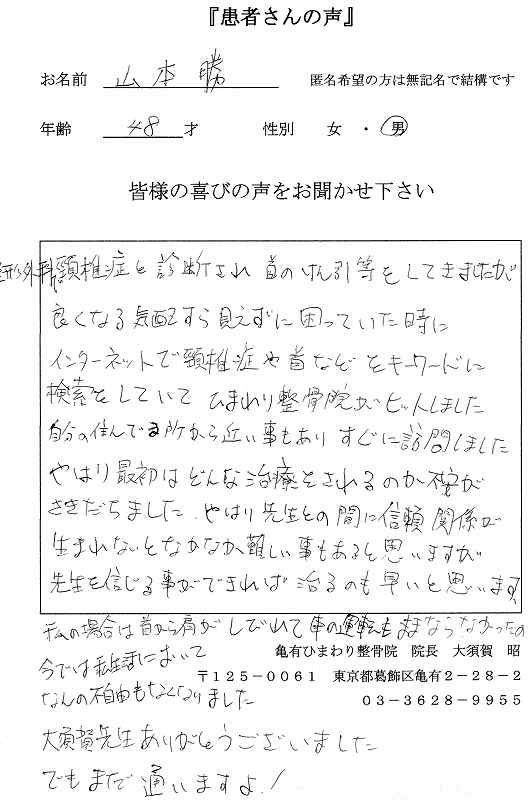 『患者さんの声』
お名前 山本勝 匿名希望の方は無記名で結構です
年齢 48 才 性別 女 ・ 男
皆様の喜びの声をお聞かせ下さい
整形外科で頸椎症と診断され 首のけん引等をしてきましたが
良くなる気配すら見えずに困っていた時に
インターネットで頸椎症や首などをキーワードに
検索をしていて ひまわり整骨院がヒットしました
自分の住んでる所から近い事もあり すぐに訪問しました
やはり最初はどんな治療をされるのか不安が
さきだちました。やはり先生との間に信頼関係が
生まれないとなかなか難しい事もあると思いますが
先生を信じる事ができれば 治るのも早いと思います
私の場合は首から肩がしびれて車の運転もままならなかったの
亀有ひまわり整骨院 院長 大須賀 昭
今では私生活において
〒125-0061 東京都葛飾区亀有2-28-2
なんの不自由もなくなりました
03-3628-9955
大須賀先生ありがとうございました
でもまだ通いますよ!